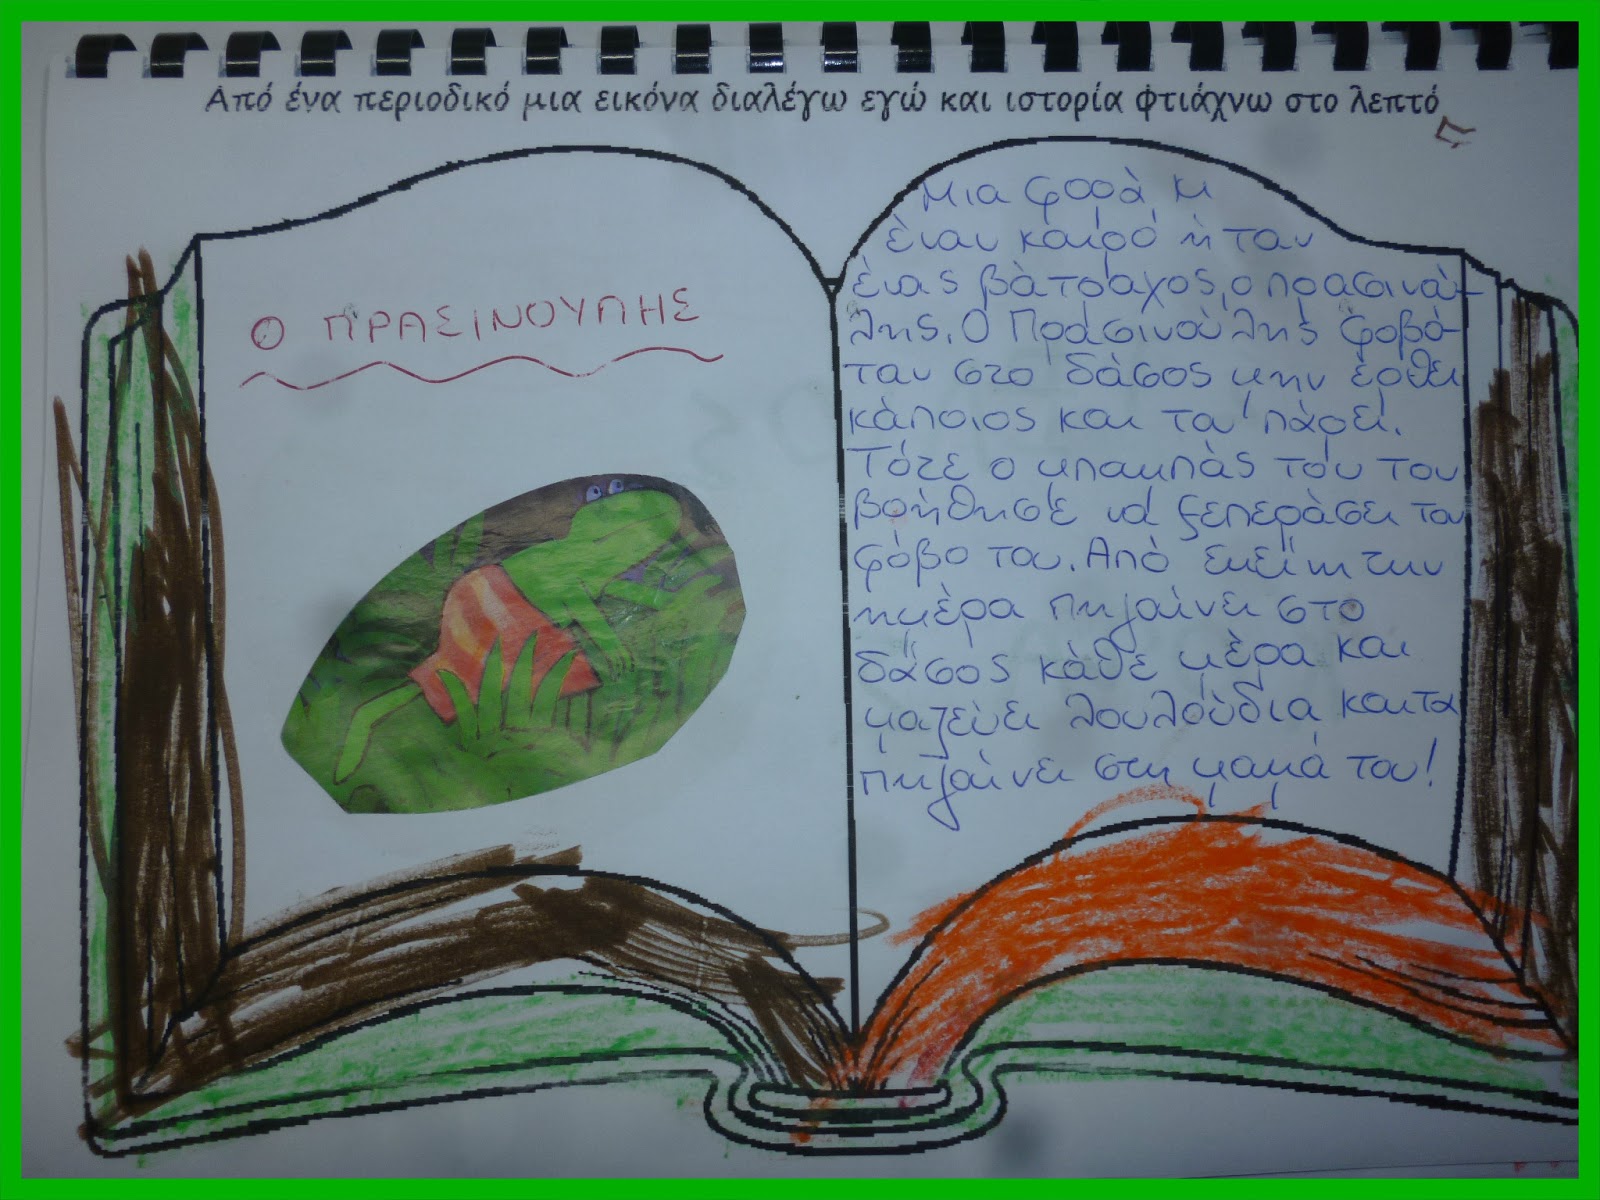 Από ένα περιοδικό μια εικόνα διαλέγω εγώ και ιστορία φτιάχνω στο λεπτό
Ο ΠΡΑΣΙΝΟΥΛΗΣ
Μια φορά κι
έναν καιρό ήταν
ένας βάτραχος, ο πρασινού-
λης. Ο Πρασινούλης φοβό-
ταν στο δάσος μην έρθει
κάποιος και τα πάρει.
Τότε ο μπαμπάς του του
βοήθησε να ξεπεράσει τον
φόβο του. Από εκείνη την
ημέρα πηγαίνει στο
δάσος κάθε μέρα και
μαζεύει λουλούδια και τα
πηγαίνει στη μαμά του!